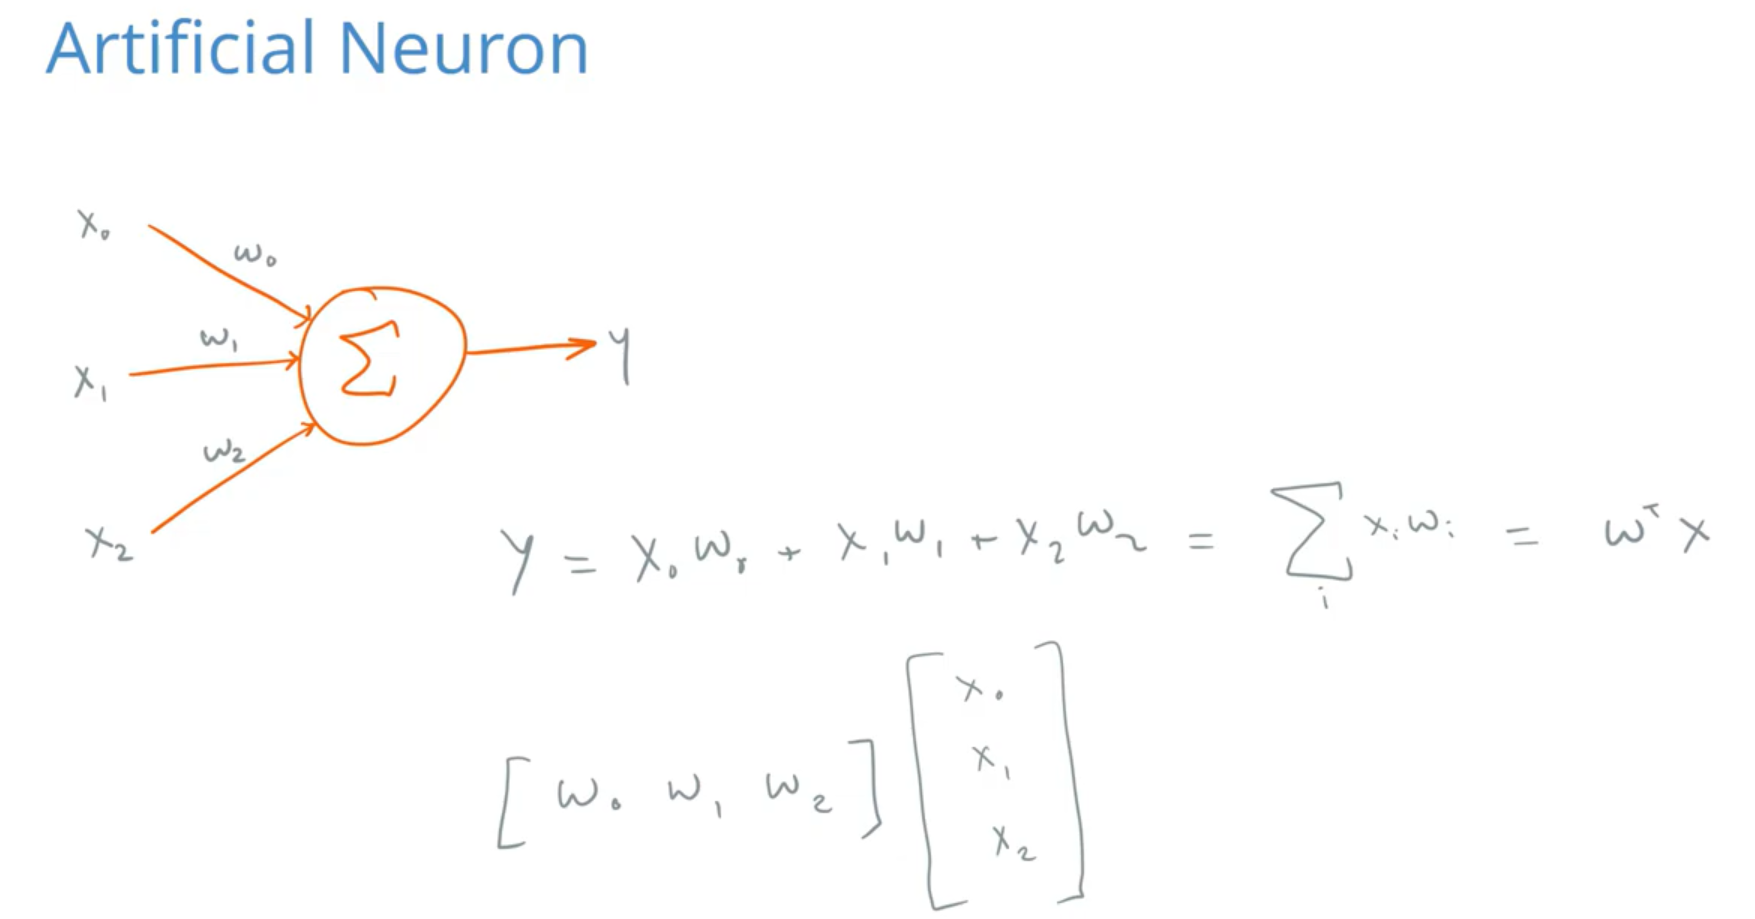 Artificial Neuron
x₀
w₀
w₁
x₁
Σ
y
w₂
x₂
y = x₀w₀ + x₁w₁ + x₂w₂ = Σᵢ xᵢwᵢ = wᵀx
[ w₀ w₁ w₂ ] [ x₀
x₁
x₂ ]